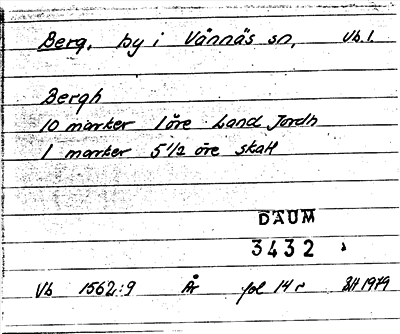 Berg, by i Vännäs sn, Vb.l.
Bergh
10 marker 1 öre Land Jordh
1 marker 5 1/2 öre skatt
DAUM
3432
Vb 1562:9 År fol 14 r BH 1979